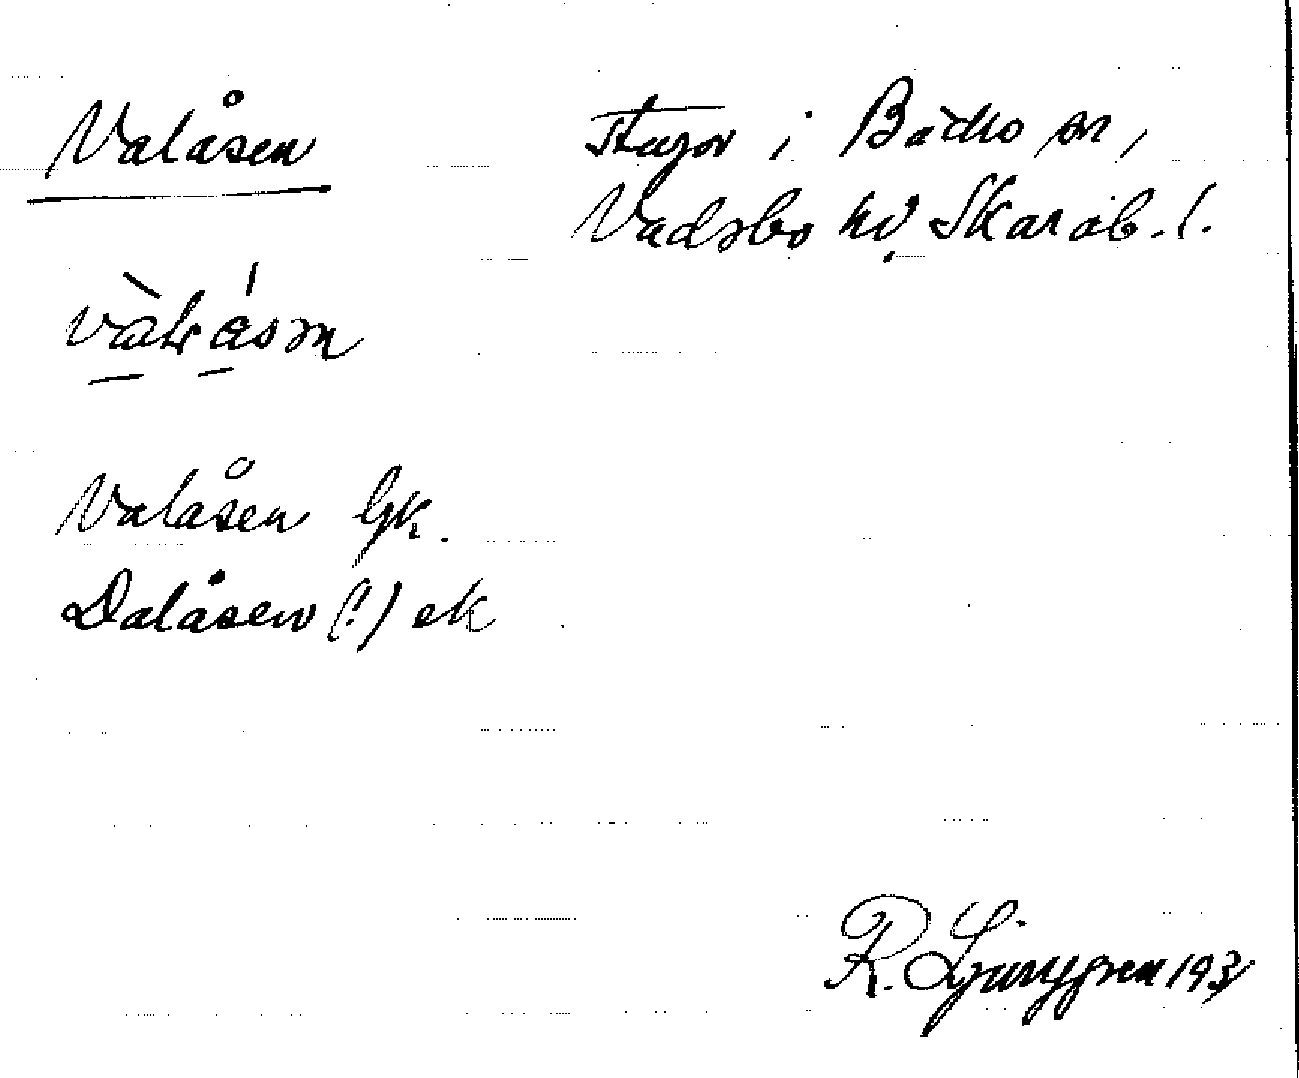 Valåsen
Torp i Bäcko sn,
Vadsbo hd Skarab. l.
Valåsen Gk.
Dalåsen (!) ek
R. Ljunggren 193